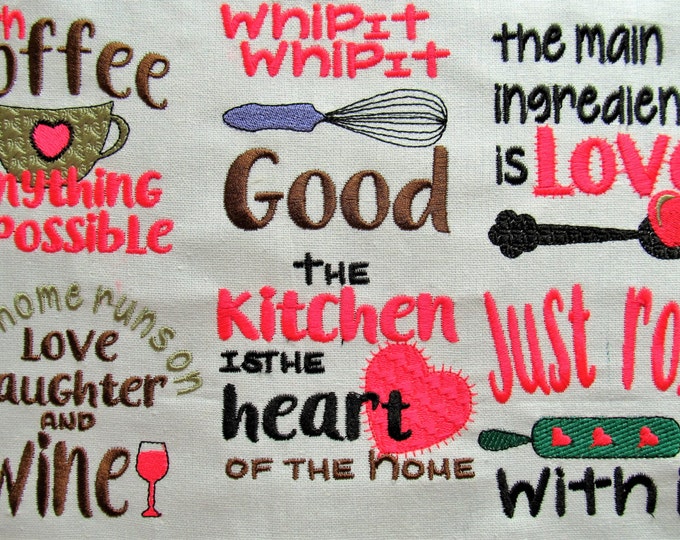 th
offee
nything
possible
Whip It
Whip It
Good
the main
ingredien
is Love
home runs on
Love
aughter
and
wine
the
Kitchen
is the
heart
of the home
Just ro
with i